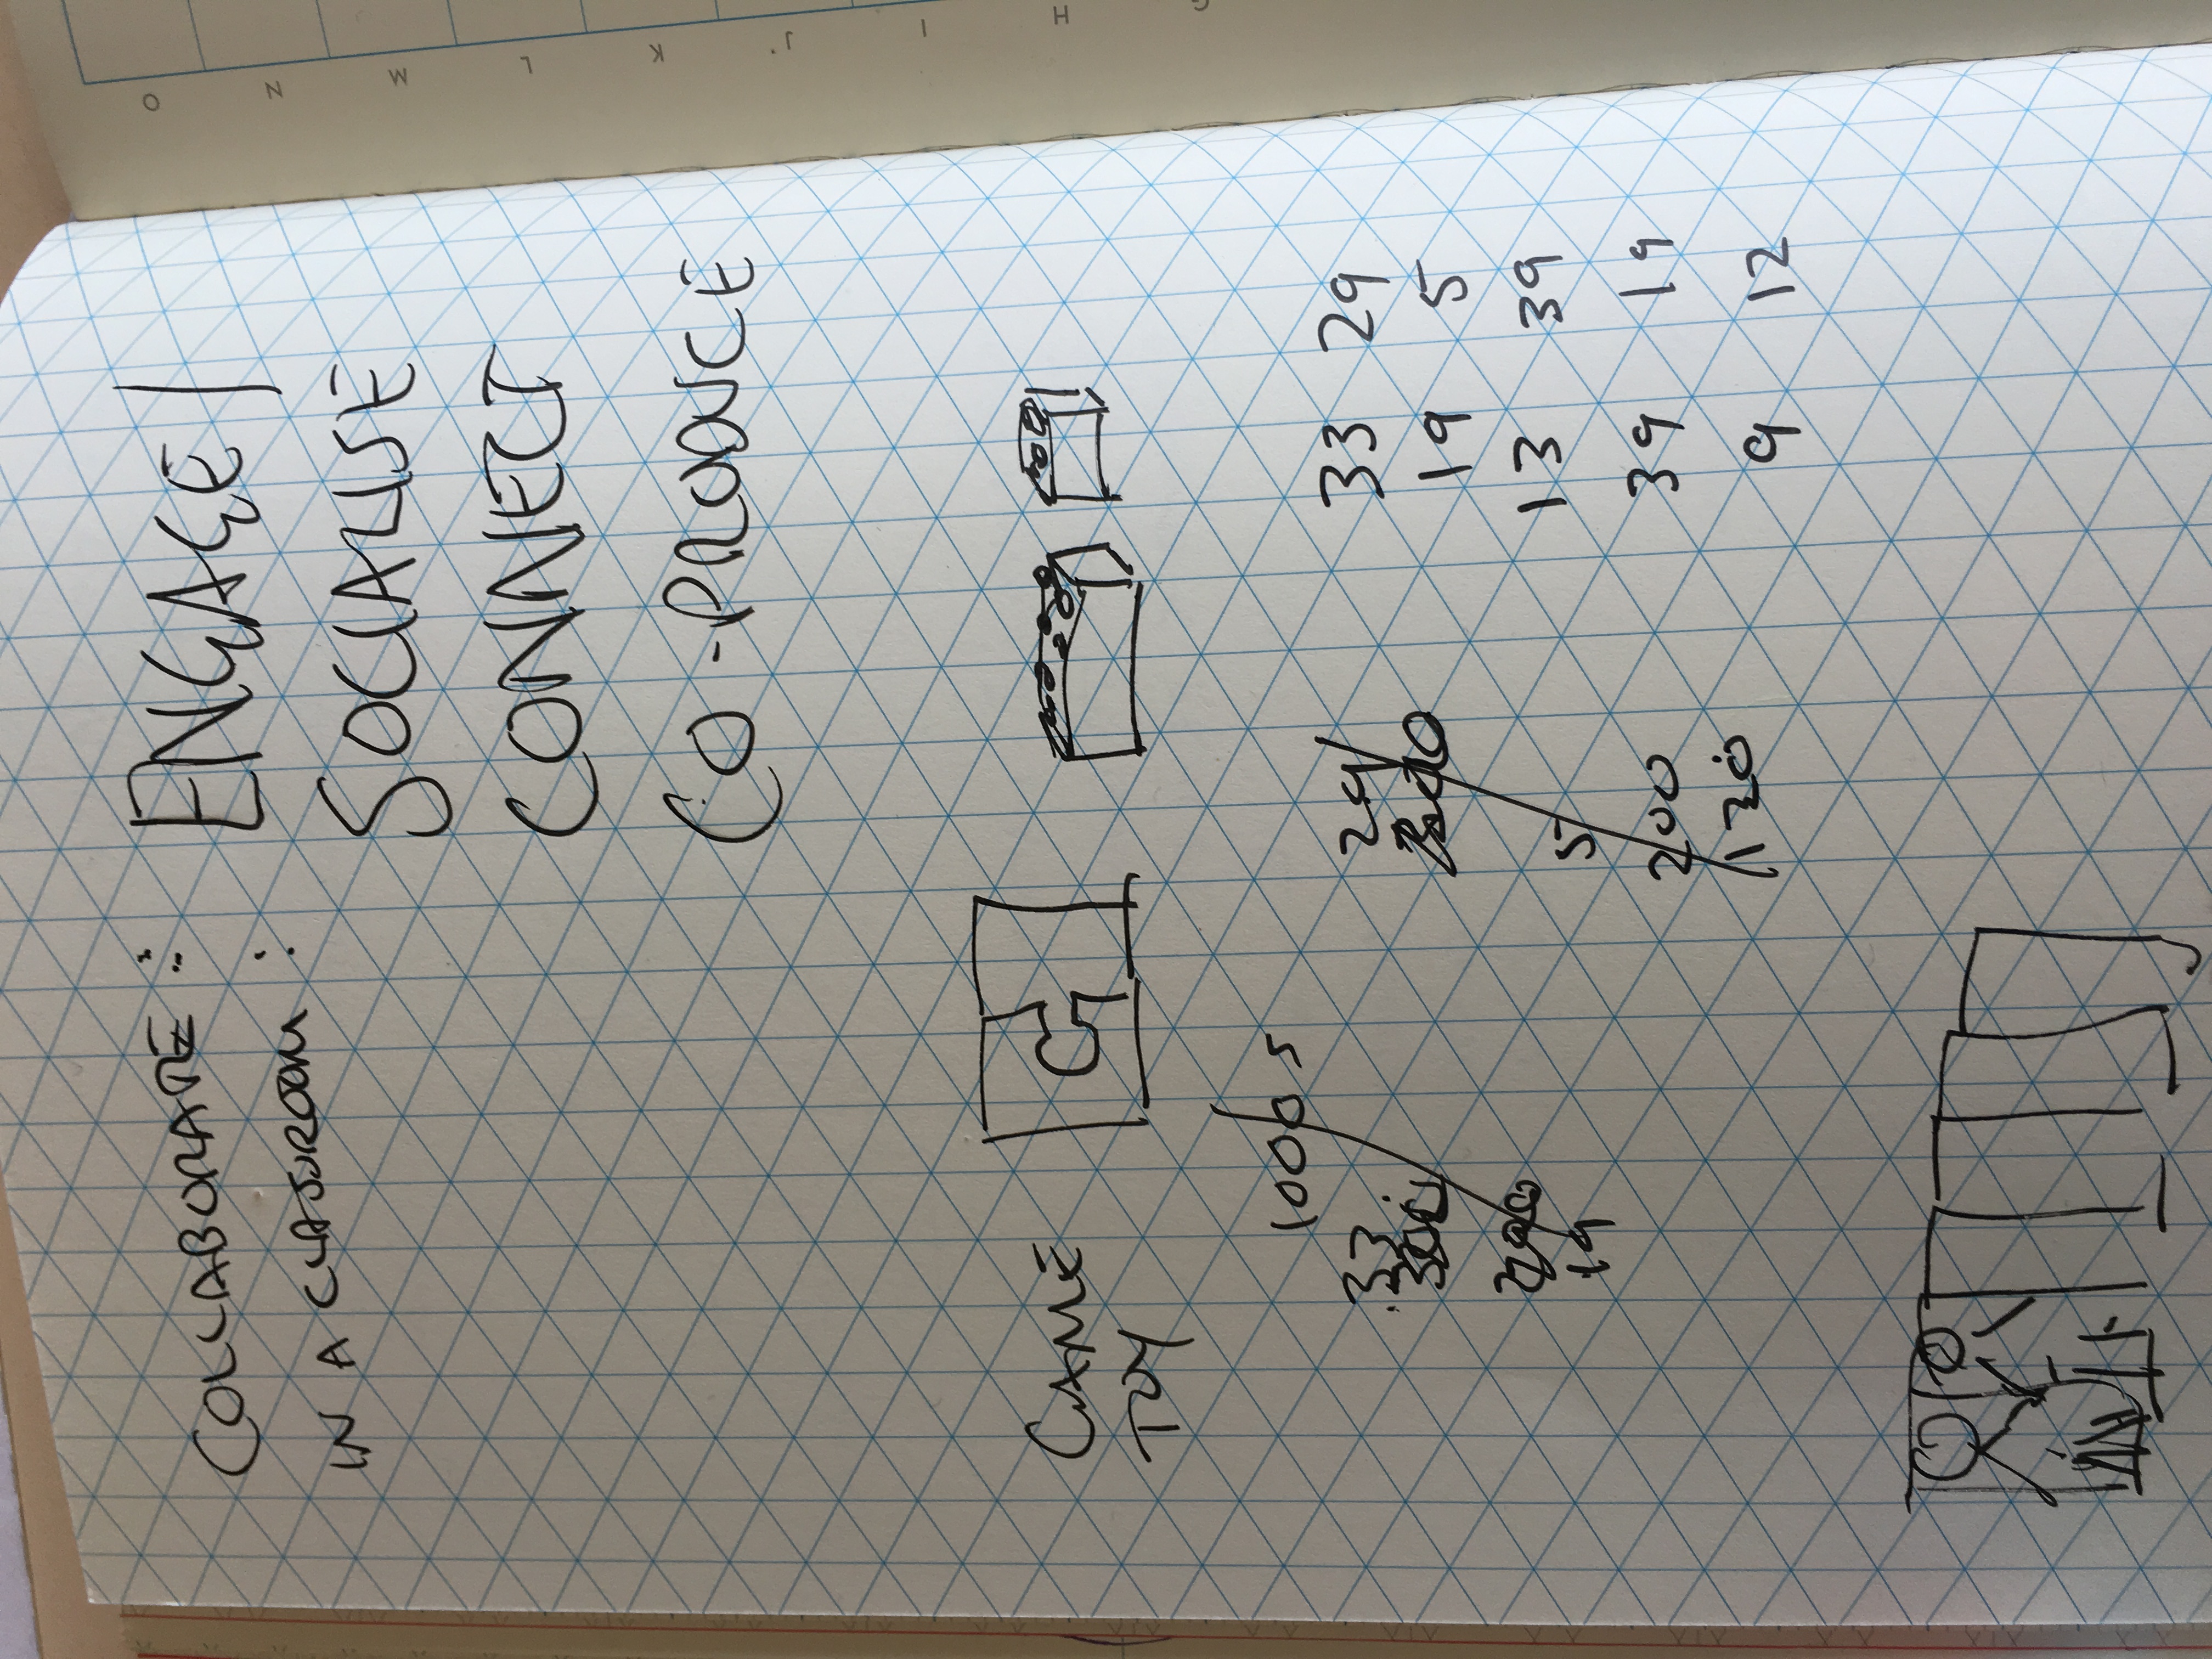 COLLABORATE :
IN A CLASSROOM :
ENGAGE /
SOCIALISE
CONNECT
CO-PRODUCE
GAME
TOY
1000s
33
300
200
19
29
5
200
120
33 29
19 5
13 39
39 19
9 12
O
N
M
L
K
J
I
H
G